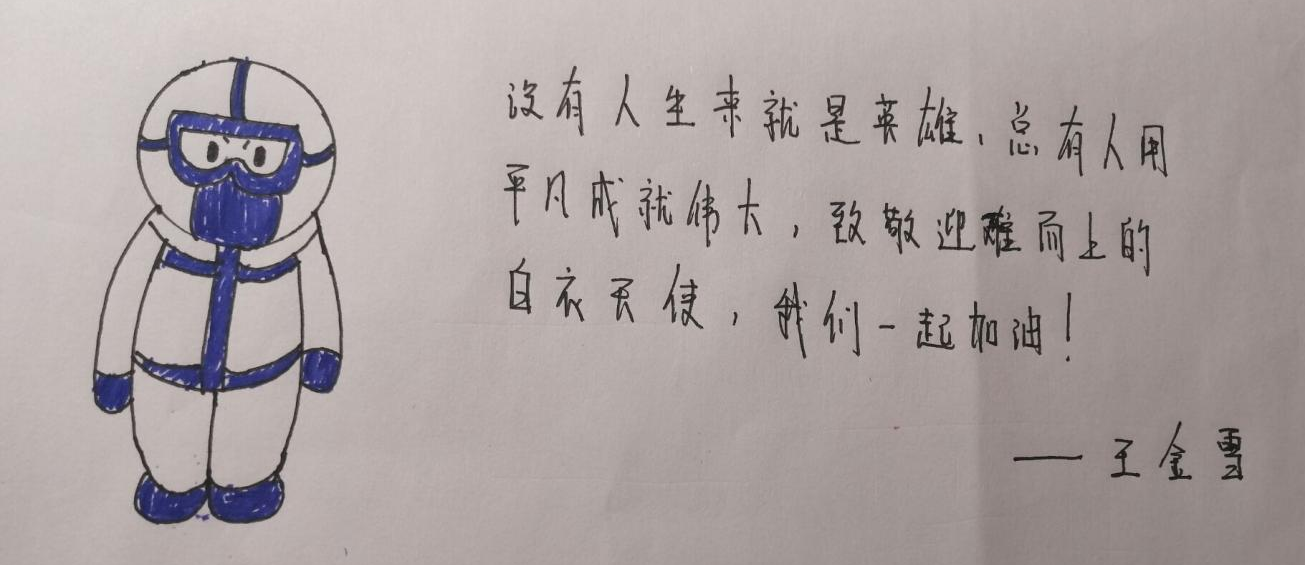 没有人生来就是英雄，总有人用
平凡成就伟大，致敬迎难而上的
白衣天使，我们一起加油！
——王金雲